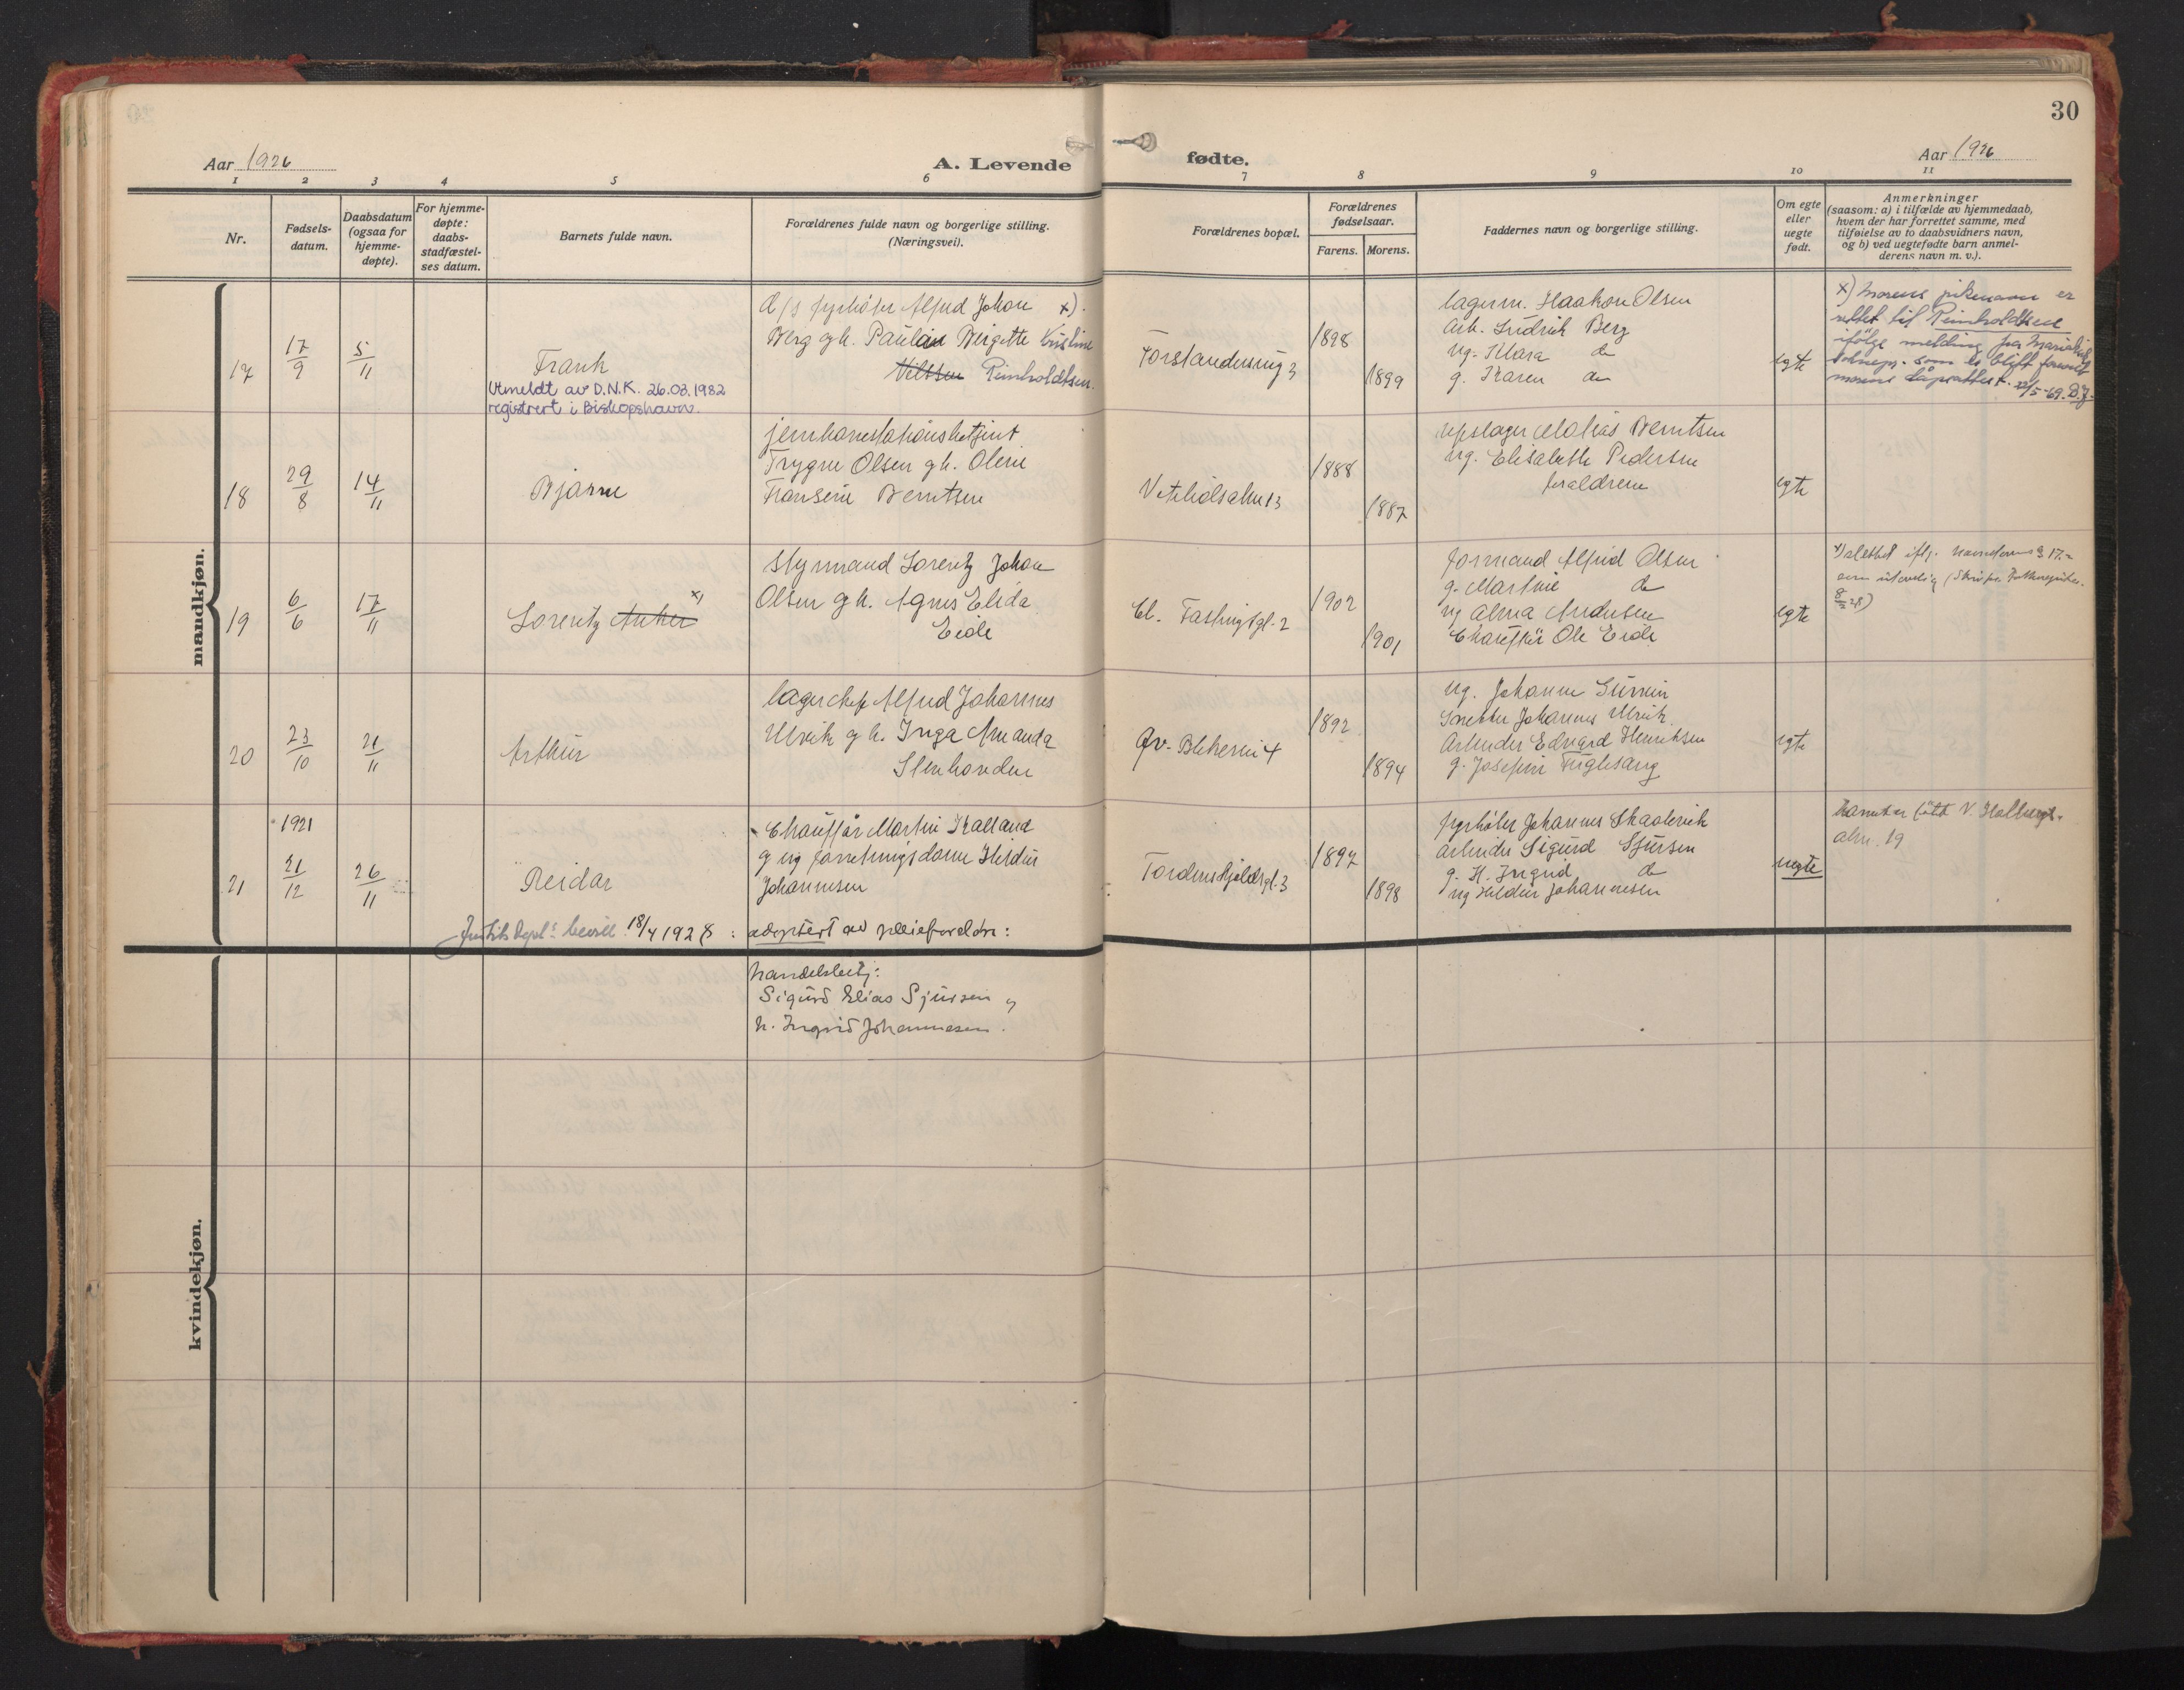 30
Aar 1926
A. Levende
fødte.
Aar 1926
1 2 3 4 5 6 7 8 9 10 11
Nr.
Fødsels-
datum.
Daabsdatum
(ogsaa for
hjemme-
døpte).
For hjemme-
døpte:
daabs-
stadfæstel-
ses datum.
Barnets fulde navn.
Forældrenes fulde navn og borgerlige stilling.
(Næringsvei).
Forældrenes bopæl.
Forældrenes
fødselsaar.
Farens. Morens.
Faddernes navn og borgerlige stilling.
Om egte
eller
uegte
født.
Anmerkninger
(saasom: a) i tilfælde av hjemmedaab,
hvem der har forrettet samme, med
tilføielse av to daabsvidners navn,
og b) ved uegtefødte barn anmel-
derens navn m. v.).
mandkjøn.
17
17/9
5/11
Frank
Utmeldt av D.N.K. 26.03.1982
registrert i Biskopshavn.
d/s fyrbøter Alfred Johan x)
Berg g h. Pauline Birgitte Kristine
Nilssen Reinholdtsen.
Forstandersmug 3
1898
1899
lagerm. Haakon Olsen
arb. Fridrik Berg
ug. Klara do
g. Karen do
egte
x) Morens pikenavn er
rettet til Reinholdtsen
ifölge melding fra Mariakirk
soknepr. som er blitt forevist
morens dåpsattest. 22/5-69. B.J.
18
29/8
14/11
Bjarne
jernbanestationsbetjent
Trygve Olsen g h. Oline
Fransene Berntsen
Vetrlidsalm 13
1888
1887
Matias Berntsen
ug. Elisabeth Pedersen
foraldrene
egte
19
6/6
17/11
Lorentz Anker x)
Styrmand Lorentz Johan
Olsen g h. Agnes Elida
Eide
Cl. Fastingsgt. 2
1902
1901
formand Alfred Olsen
g. Martine do
ug Alma Andersen
Chauffør Ole Eide
egte
x) slettet iflg. navnelovens § 17
20
23/10
21/11
Arthur
lagerchef Alfred Johannes
Ulrik g h. Inga Amanda
Stenhovden
Øv. Blekevei 4
1892
1894
ug. Johanne
Snekker Johannes Ulrik.
Arbeider Edvard Henriksen
g. Josefine Fuglesang
egte
21
1921
21/12
26/11
Reidar
Chauffør Martin Kalland
g ug forretningsdame Hildur
Johannesen
Tordenskjoldsgt. 3
1897
1898
fyrbøter Johannes Skaalevik
arbeider Sigurd Sjursen
g. H. Ingrid do
ug Hildur Johannesen
uegte
barnet er født V. Holbergs-
alm. 19
Justisdept.s bevill. 18/4 1928 : adoptert av pleieforeldre:
kvindekjøn.
handelsbetj:
Sigurd Elias Sjursen og
h. Ingrid Johannesen.